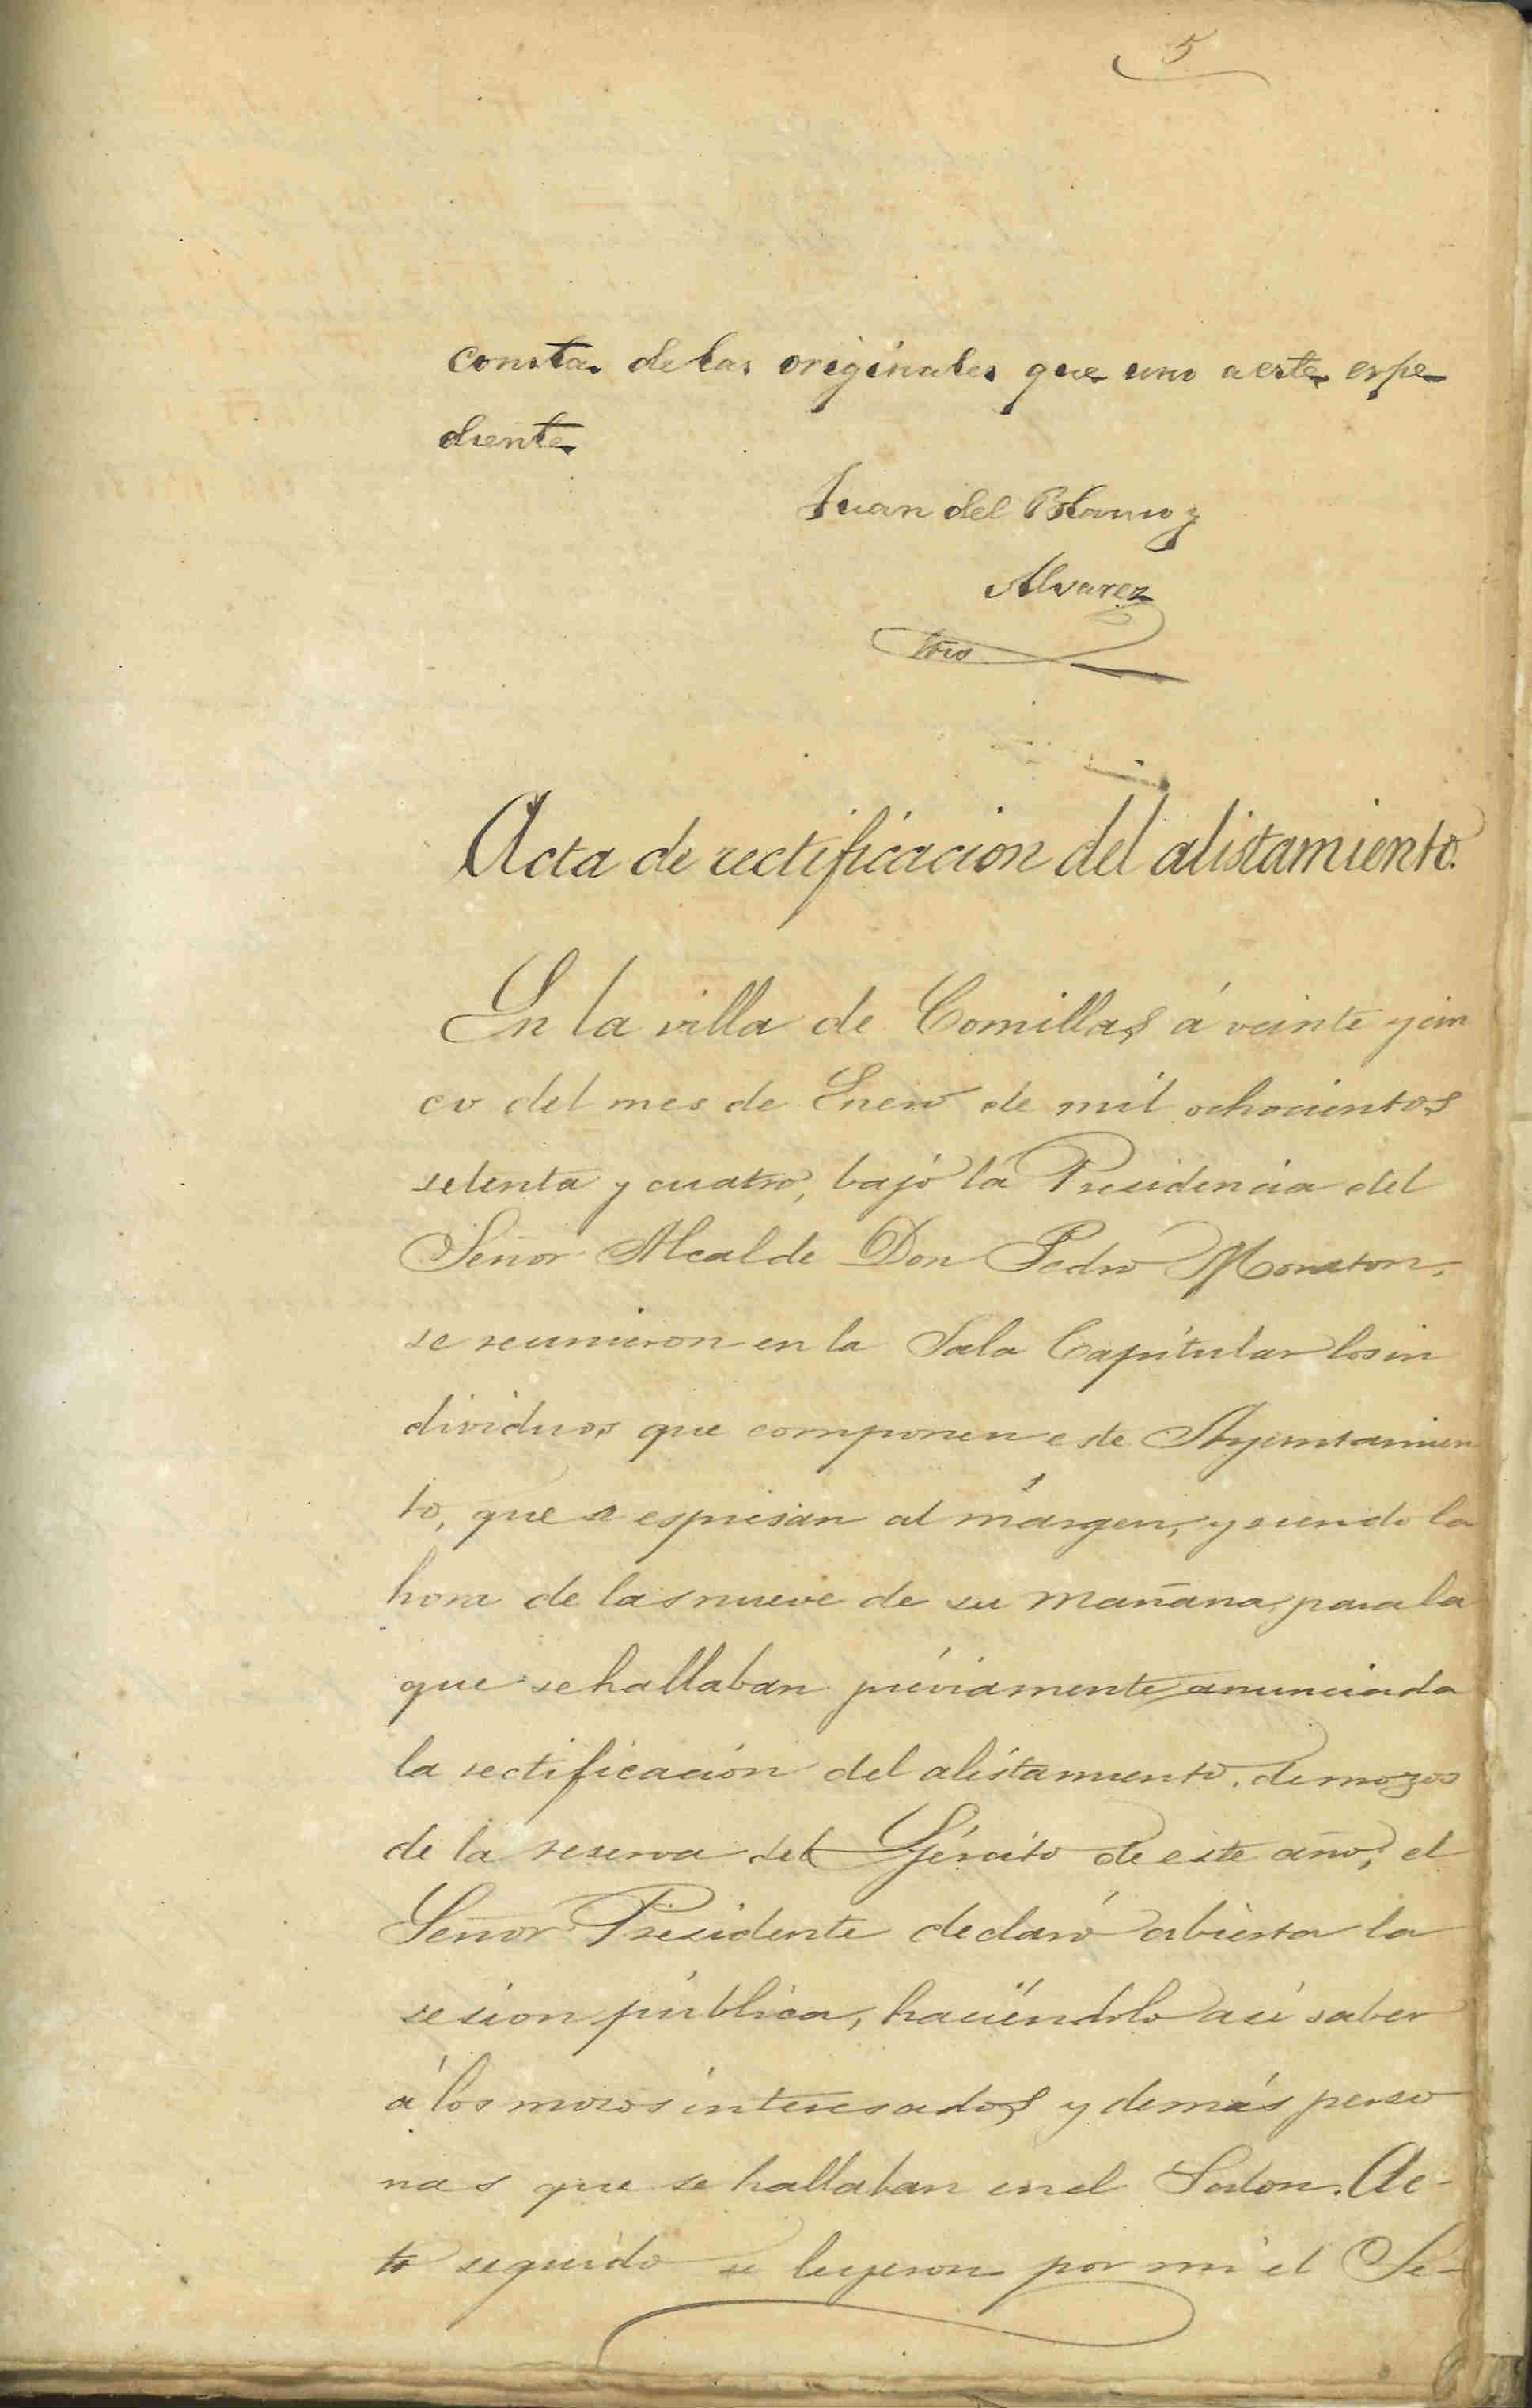 5
consta de las originales que uno a este espe
diente
Juan del Blanco y
Alvarez
Srio
Acta de rectificacion del alistamiento.
En la villa de Comillas á veinte y cin
co del mes de Enero de mil ochocientos
setenta y cuatro, bajo la Presidencia del
Señor Alcalde Don Pedro
se reunieron en la Sala Capitular los in
dividuos que componen este Ayuntamien
to, que se espresan al márgen, y siendo la
hora de las nueve de su mañana, para la
que se hallaban préviamente anunciada
la rectificación del alistamiento de mozos
de la reserva del Ejército de este año, el
Señor Presidente declaró abierta la
sesion pública, haciéndolo así saber
á los mozos interesados y demás perso
nas que se hallaban en el Salon. Ac-
to seguido se leyeron por mi el Se-